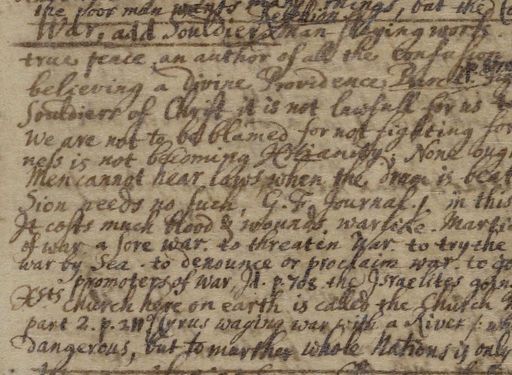 the poor man wants many things, but the
Rebellion
War, add Souldier man slaying work
true peace, an author of all the confusi
believing a Divine Providence
Souldiers of Christ it is not lawfull for us to
We are not to be blamed for not fighting for
ness is not becoming Xtianity. None ough
Men cannot hear laws when the drum is beat
Sion needs no such, G. F. Journal. in this
It costs much blood & wounds. warlike. Marti
of war. a sore war. to threaten war. to try the
war by Sea. to denounce or proclaim war. to go
promoters of War, Jd. p. 708 the Israelites goin
Xsts Church here on earth is called the Church
part 2. p. 211 Cyrus waging war with a River
dangerous, but to murther whole Nations is only